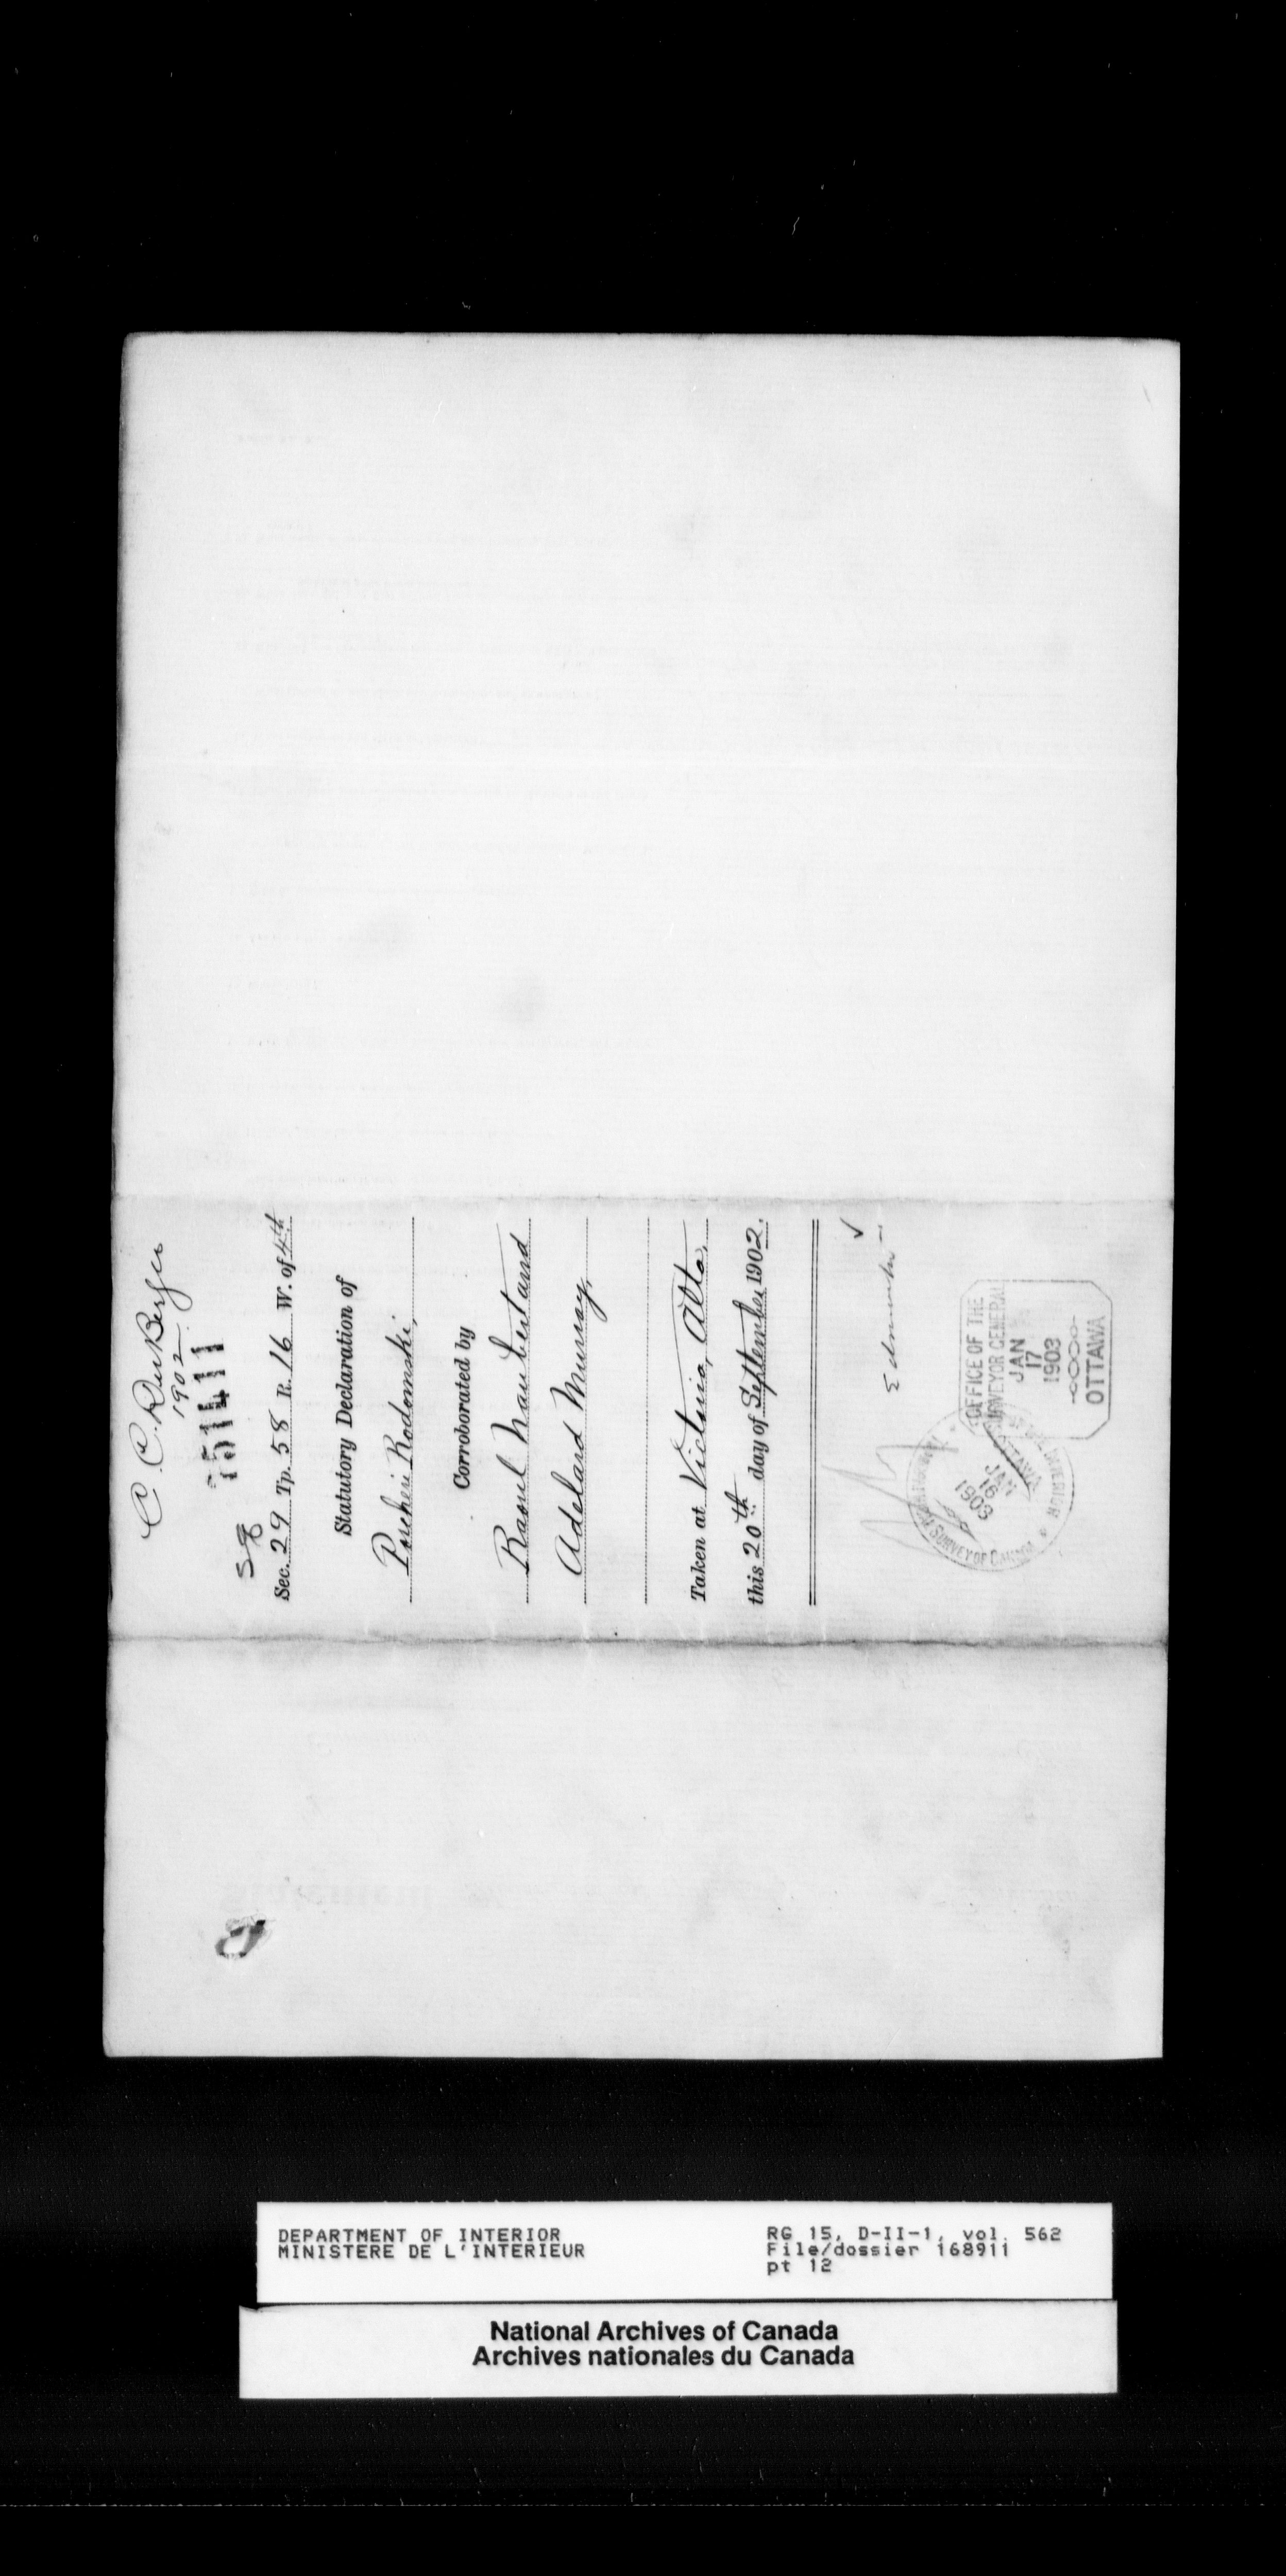 C. C. DuBerger
1902
51411
58
Sec. 29 Tp. 58 R. 16 W. of 4th
Statutory Declaration of
Rodomski,
Corroborated by
Raoul
Adelard Murray,
Taken at Victoria, Alta,
this 20th day of September 1902.
Edmonton
OFFICE OF THE
SURVEYOR GENERAL
JAN
17
1903
OTTAWA
SURVEY OF CANADA
JAN
16
1903
DEPARTMENT OF INTERIOR
MINISTERE DE L'INTERIEUR
RG 15, D-II-1, vol. 562
File/dossier 168911
pt 12
National Archives of Canada
Archives nationales du Canada